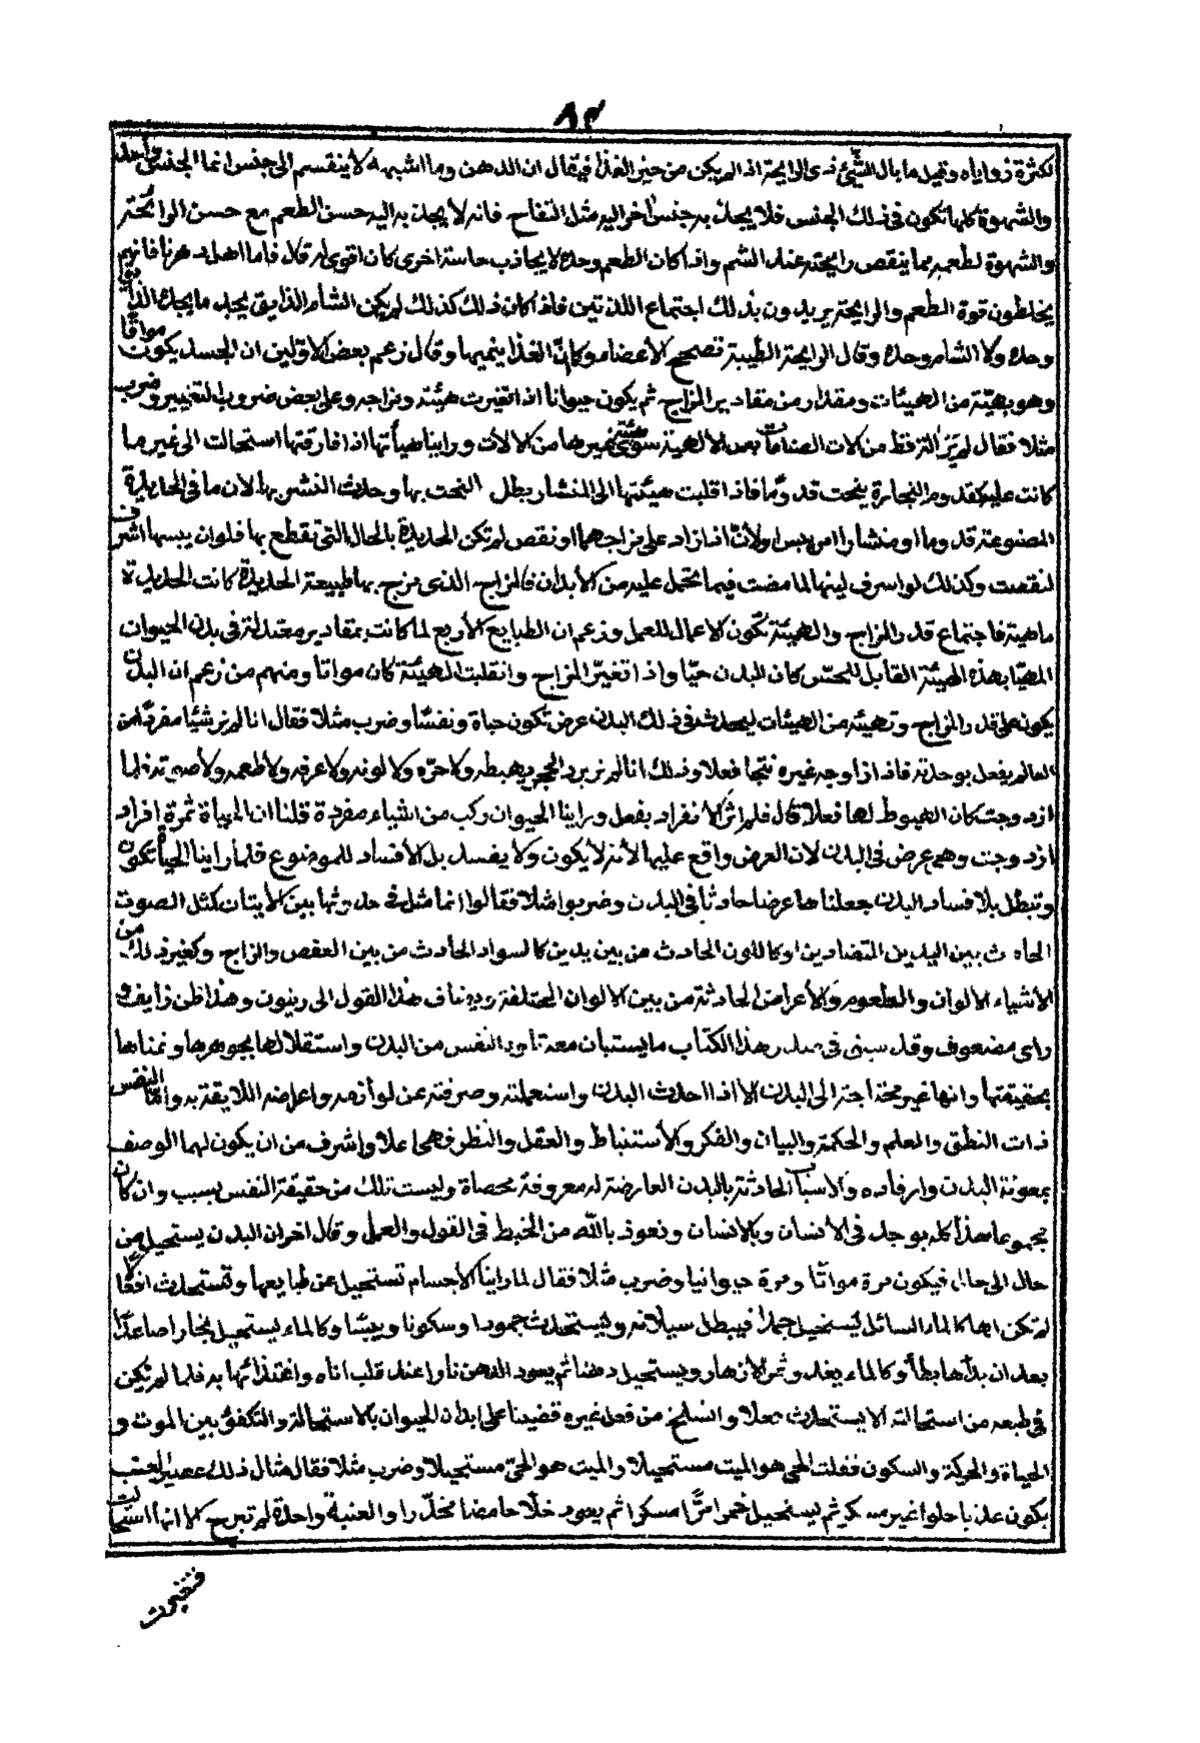 ٨٣
لكثرة زواياه وقيل ما بال الشيء ذى الرايحة اذا لم يكن من حيز الغذا فيقال ان الدهن وما اشبهه لا ينقسم الى جنس انما الجنس واحد
والشهوة كلها تكون فى ذلك الجنس فلا يجذبه جنس اخر اليه مثل التفاح فانه لا يجذبه اليه حسن الطعم مع حسن الرايحة
والشهوة لطعمه مما ينقص رايحته عند الشم واذا كان الطعم وحده لا يجاذب حاسة اخرى كان اقوى له قال فاما اهل دهرنا فانهم
يخلطون قوة الطعم والرايحة يريدون بذلك اجتماع اللذتين فاذا كان ذلك كذلك لم يكن الشام الذايق يجد ما يجد الذايق
وحده ولا الشام وحده وقال الرايحة الطيبة تصحح الاعضا وكان الغذا ينميها وقال زعم بعض الاولين ان الجسد يكون مواتا
وهو بهيئة من الهيئات ومقدار من مقادير المزاج ثم يكون حيوانا اذا تغيرت هيئته ومزاجه وعلى بعض ضروب التغيير وضرب
مثلا فقال لم تر الة قط من الات الصناعات بعد الالهية سوى هيئتها من الالات وراينا هيأتها اذا فارقتها استحالت الى غير ما
كانت عليه كقدوم النجارة ينحت قدوما فاذا قلبت هيئتها الى المنشار بطل النحت بها وحدث النشر بها لان ما فى الحديدة
المصنوعة قدوما او منشارا من يبس او لان اذا زاد على مزاجهما او نقص لم تكن الحديدة بالحال التى تقطع بها فلو ان يبسها اشرف
لنقصت وكذلك لو اسرف لينها لما مضت فيما تحمل عليه من الابدان فالمزاج الذى مزج بها طبيعة الحديدة كانت الحديدة
ماهية فاجتماع قدر المزاج والهيئة تكون الاعمال للعمل وزعم ان الطبايع الاربع لما كانت بمقادير معتدلة فى بدن الحيوان
المهيا بهذه الهيئة القابل للحس كان البدن حيا واذا تغير المزاج وانقلبت الهيئة كان مواتا ومنهم من زعم ان البدن
يكون على قدر المزاج وتهيئه من الهيئات ليحدث فى ذلك البدن عرض تكون حياة ونفسا وضرب مثلا فقال انا لم نر شيئا مفردا من
العالم يفعل بوحدته فاذا ازاوجه غيره نتجا فعلا وذلك انا لم نر برد الحجر يهبطه ولا حره ولا لونه ولا عرفه ولا طعمه ولا صمته فلما
ازدوجت كان الهبوط لها فعلا قال فلم نر الانفراد يفعل وراينا الحيوان ركب من اشياء مفردة قلنا ان الحياة ثمرة افراد
ازدوجت وهى عرض فى البدن لان العرض واقع عليها لانه لا يكون ولا يفسد بل الافساد للموضوع فلما راينا الحياة تكون
وتبطل بلا فساد البدن جعلناها عرضا حادثا فى البدن وضربوا مثلا فقالوا انما مثل فى حدوثها بين كمثل الصوت
الحادث بين اليدين المتضادين او كاللون الحادث من بين بدين كالسواد الحادث من بين العفص والزاج وكغير ذلك من
الاشياء الالوان والطعوم والاعراض الحادثة من بين الالوان المختلفة ويضاف هذا القول الى زينون وهذا ظن زايف و
راى مضعوف وقد سبق فى صدر هذا الكتاب ما يستبان معه تاويد النفس من البدن واستقلالها بجوهرها وتمنا لها
بحقيقتها وانها غير محتاجة الى البدن الا اذا احدث البدن واستعملته وصرفته عن لوازمه واعراضه اللايقة به واما النفس
ذات النطق والعلم والحكمة والبيان والفكر والاستنباط والعقل والنظر فهى اعلا واشرف من ان يكون لها الوصف
بمعونة البدن وارفاده والاسباب الحادثة بالبدن العارضة له معروفة محصاة وليست تلك من حقيقة النفس بسبب وان كان
مجموعا هذا كله يوجد فى الانسان وبالانسان ونعوذ بالله من الخبط فى القول والعمل وقال اخر ان البدن يستحيل من
حال الى حال فيكون مرة مواتا ومرة حيوانيا وضرب مثلا فقال لما راينا الاجسام تستحيل عن طبايعها وتستحدث افعالا
لم تكن لها كالماء السائل يستحيل جمدا فيبطل سيلانه ويستحدث جمودا وسكونا ويبسا وكالماء يستحيل بخارا صاعدا
بعد ان بدا هابطا وكالماء يغد وثمر الازهار ويستحيل دهنا ثم يسود الدهن نارا عند قلب اناه واغتذائها به فلما لم تكن
فى طبعه من استحالته الا يستحدث فعلا وانسلخ من فعل غيره قضينا على ابدان الحيوان بالاستحالة والتكفؤ بين الموت و
الحياة والحركة والسكون فقلت الحى هو الميت مستحيلا والميت هو الحى مستحيلا وضرب مثلا فقال مثال ذلك عصير العنب
يكون عذبا حلوا غير مسكر ثم يستحيل خمرا مرا مسكرا ثم يعود خلا حامضا مخدرا والعنبة واحدة لم تبرح الا انها استحالت